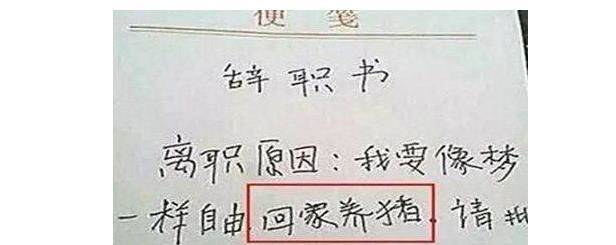 便笺
辞职书
离职原因:我要像梦
一样自由,回家养猪.请批